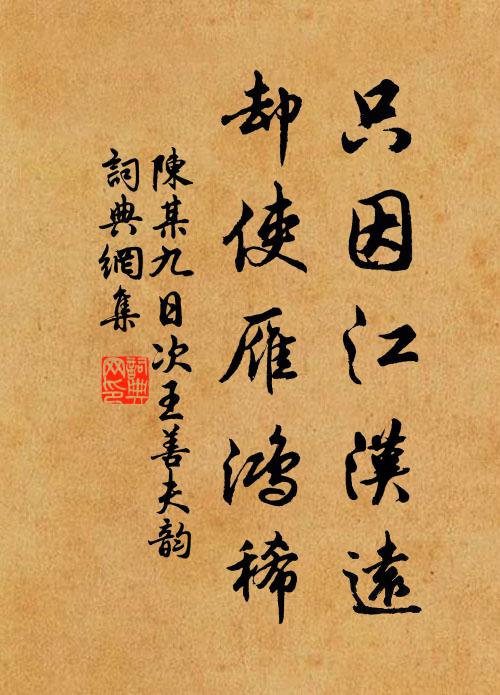 只因江漢遠
却使雁鴻稀
陳某九日次王善夫韵
詞典網集
詞典
网印